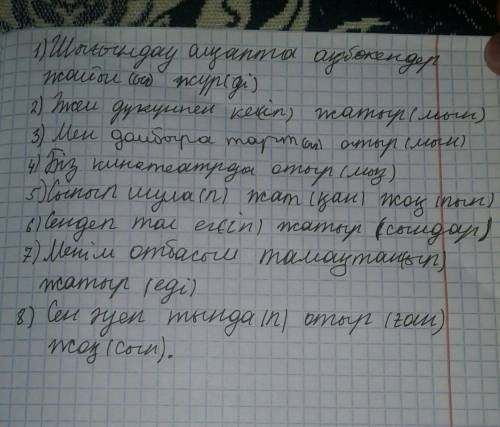 1) Шығындау алқапта ақбөкендер
жайы(лып) жүр(ді)
2) Мен дүкеннен кел(іп) жатыр(мын)
3) Мен домбыра тарт(ып) отыр(мын)
4) Біз кинотеатрда отыр(мыз)
5) Сынып шула(п) жат(қан) жоқ(пын)
6) Сендер тал ег(іп) жатыр (сыңдар)
7) Менім отбасым тамақтан(ып)
жатыр (еді)
8) Сен әуен тыңда(п) отыр(ған)
жоқ(сың).